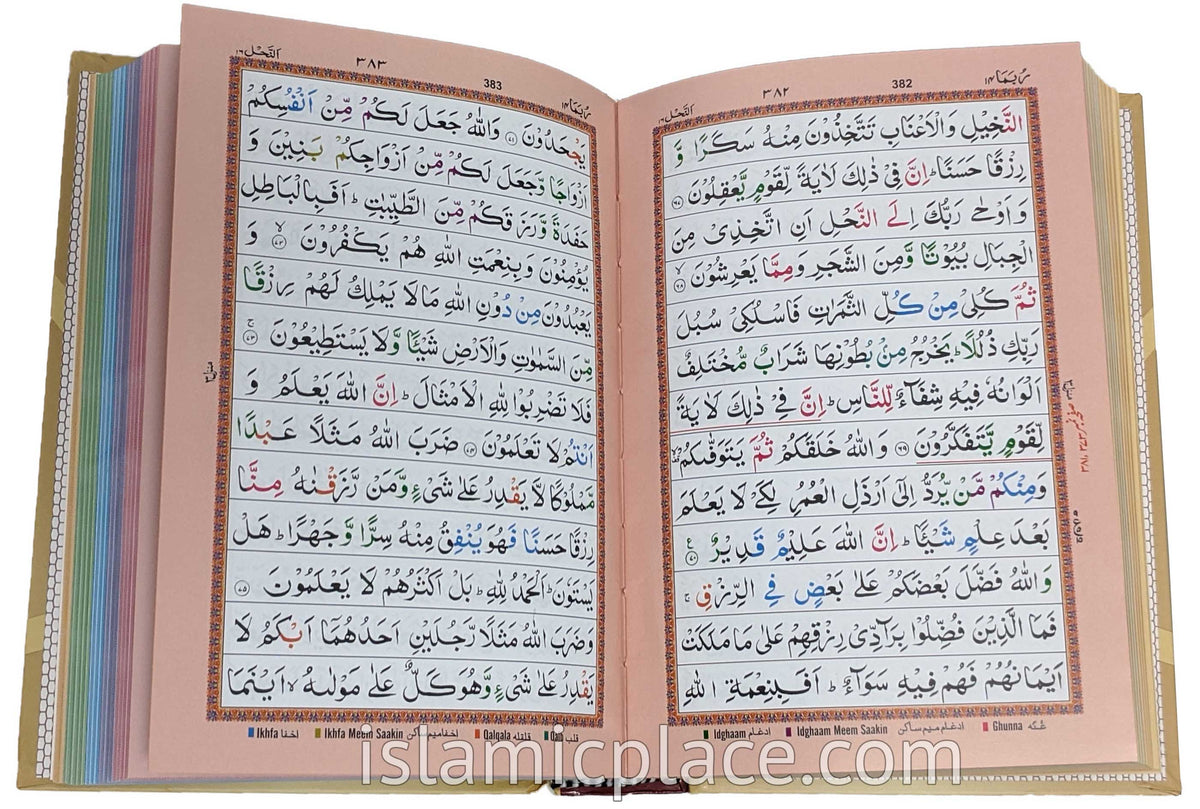 رُبَمَا ١٤
382
٣٨٢
اَلنَّحْل ١٦
النَّخِيْلِ وَالْاَعْنَابِ تَتَّخِذُوْنَ مِنْهُ سَكَرًا وَّ
رِزْقًا حَسَنًا ؕ اِنَّ فِيْ ذٰلِكَ لَاٰيَةً لِّقَوْمٍ يَّعْقِلُوْنَ ٦٧
وَ اَوْحٰى رَبُّكَ اِلَى النَّحْلِ اَنِ اتَّخِذِيْ مِنَ
الْجِبَالِ بُيُوْتًا وَّمِنَ الشَّجَرِ وَمِمَّا يَعْرِشُوْنَ ۙ ٦٨
ثُمَّ كُلِيْ مِنْ كُلِّ الثَّمَرٰتِ فَاسْلُكِيْ سُبُلَ
رَبِّكِ ذُلُلًا ؕ يَخْرُجُ مِنْۢ بُطُوْنِهَا شَرَابٌ مُّخْتَلِفٌ
اَلْوَانُهٗ فِيْهِ شِفَآءٌ لِّلنَّاسِ ؕ اِنَّ فِيْ ذٰلِكَ لَاٰيَةً
لِّقَوْمٍ يَّتَفَكَّرُوْنَ ٦٩ وَاللّٰهُ خَلَقَكُمْ ثُمَّ يَتَوَفّٰىكُمْ
وَمِنْكُمْ مَّنْ يُّرَدُّ اِلٰٓى اَرْذَلِ الْعُمُرِ لِكَيْ لَا يَعْلَمَ
بَعْدَ عِلْمٍ شَيْـًٔا ؕ اِنَّ اللّٰهَ عَلِيْمٌ قَدِيْرٌ ٧٠ ع
وَاللّٰهُ فَضَّلَ بَعْضَكُمْ عَلٰى بَعْضٍ فِي الرِّزْقِ ۚ
فَمَا الَّذِيْنَ فُضِّلُوْا بِرَآدِّيْ رِزْقِهِمْ عَلٰى مَا مَلَكَتْ
اَيْمَانُهُمْ فَهُمْ فِيْهِ سَوَآءٌ ؕ اَفَبِنِعْمَةِ اللّٰهِ
Idghaam ادغام Idghaam Meem Saakin ادغام میم ساکن Ghunna غُنّہ
رُبَمَا ١٤
383
٣٨٣
اَلنَّحْل ١٦
يَجْحَدُوْنَ ٧١ وَاللّٰهُ جَعَلَ لَكُمْ مِّنْ اَنْفُسِكُمْ
اَزْوَاجًا وَّجَعَلَ لَكُمْ مِّنْ اَزْوَاجِكُمْ بَنِيْنَ وَ
حَفَدَةً وَّرَزَقَكُمْ مِّنَ الطَّيِّبٰتِ ؕ اَفَبِالْبَاطِلِ
يُؤْمِنُوْنَ وَبِنِعْمَتِ اللّٰهِ هُمْ يَكْفُرُوْنَ ۙ ٧٢ وَ
يَعْبُدُوْنَ مِنْ دُوْنِ اللّٰهِ مَا لَا يَمْلِكُ لَهُمْ رِزْقًا
مِّنَ السَّمٰوٰتِ وَالْاَرْضِ شَيْـًٔا وَّلَا يَسْتَطِيْعُوْنَ ۚ ٧٣
فَلَا تَضْرِبُوْا لِلّٰهِ الْاَمْثَالَ ؕ اِنَّ اللّٰهَ يَعْلَمُ وَ
اَنْتُمْ لَا تَعْلَمُوْنَ ٧٤ ضَرَبَ اللّٰهُ مَثَلًا عَبْدًا
مَّمْلُوْكًا لَّا يَقْدِرُ عَلٰى شَيْءٍ وَّمَنْ رَّزَقْنٰهُ مِنَّا
رِزْقًا حَسَنًا فَهُوَ يُنْفِقُ مِنْهُ سِرًّا وَّجَهْرًا ؕ هَلْ
يَسْتَوٗنَ ؕ اَلْحَمْدُ لِلّٰهِ ؕ بَلْ اَكْثَرُهُمْ لَا يَعْلَمُوْنَ ٧٥
وَضَرَبَ اللّٰهُ مَثَلًا رَّجُلَيْنِ اَحَدُهُمَآ اَبْكَمُ لَا
يَقْدِرُ عَلٰى شَيْءٍ وَّهُوَ كَلٌّ عَلٰى مَوْلٰىهُ ۙ اَيْنَمَا
Ikhfa اخفا Ikhfa Meem Saakin اخفا میم ساکن Qalqala قلقلہ Qalb قلب
islamicplace.com